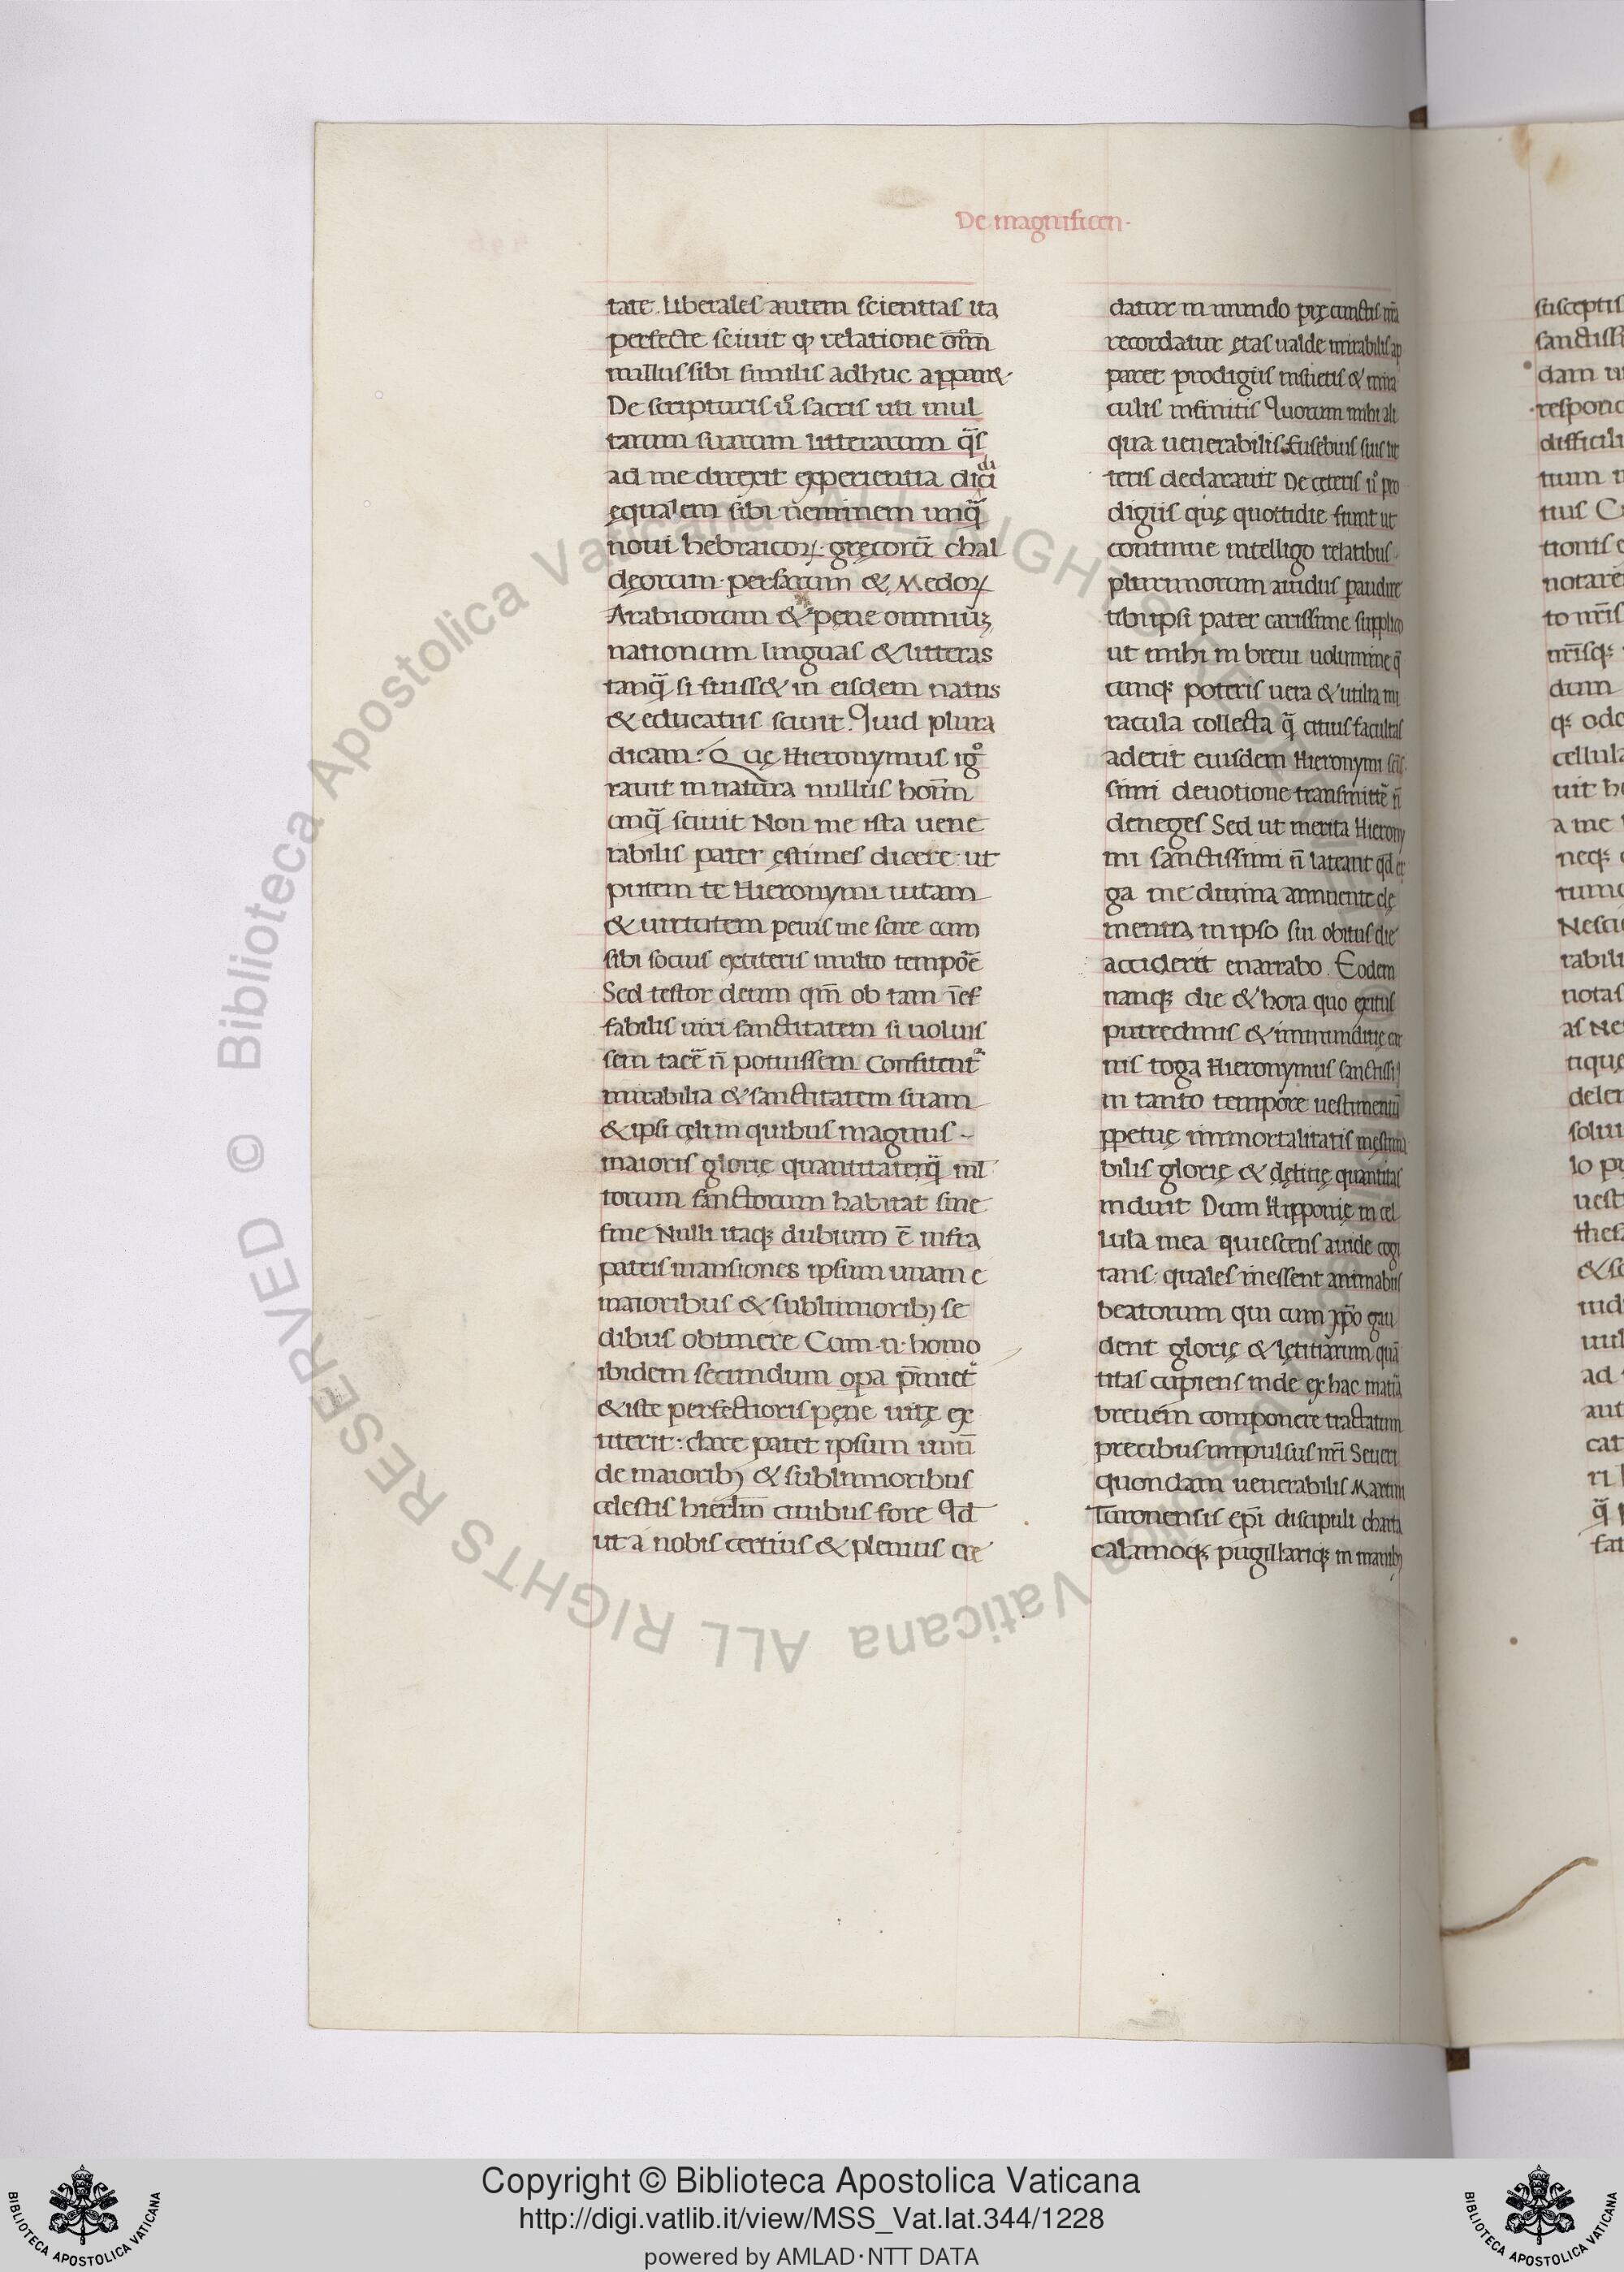 De magnificen·
tate. Liberales autem scientias ita
perfecte sciuit ꝙ relatione om̅
nullus sibi similis adhuc apparꝫ·
De scripturis u̅ sacris uti mul
tarum suarum litterarum q̅s
ad me direxit experientia didici
ęqualem sibi neminem unq̅
noui hebraicoꝝ· gręcoru̅ chal
dęorum· persarum & Medoꝝ
Arabicorum & pene omniuꝫ
nationum linguas & litteras
tanq̅ si fuiss& in eisdem natus
& educatus sciuit. Quid plura
dicam? Quę Hieronymus igo̅
rauit in natura nullus hoīm
unq̅ sciuit Non me ista uene
rabilis pater ęstimes dicere: ut
putem te Hieronymi uitam
& uirtutem peius me scire cum
sibi socius extiteris multo tempo̅e
Sed testor deum qm̅ ob tam i̅ef
fabilis uiri sanctitatem si uoluis
sem tace̅ n̅ potuissem Confitent᷑
mirabilia & sanctitatem suam
& ipsi cęli in quibus magnus -
maioris glorię quantitateq̅ ml̅
torum sanctorum habitat sine
fine Nulli itaqꝫ dubium e̅ infra
patris mansiones ipsum unam e
maioribus & sublimioribꝫ se
dibus obtinere Cum·n·homo
ibidem secundum opa p̅miet᷑
& iste perfectioris pęne uitę ex
titerit: clare patet ipsum unu̅
de maioribꝫ & sublimioribus
celestis hierl̅m ciuibus fore Qd
ut a nobis certius & plenius cre
datur in mundo pre cunctis nr̅a
recordatur ętas ualde mirabilis ap
paret prodigiis insuetis & mira
culis infinitis Quorum mihi ali
qua uenerabilis Eusebius suis lit
teris declarauit De ceteris u̅ pro
digiis quę quottidie fiunt ut
continue intelligo relatibus
plurimorum auidus paudire
tibi ipsi pater carissime supplico
ut mihi in breui uolumine q̅
cunqꝫ poteris uera & utilia mi
racula collecta q̅ citius facultas
aderit eiusdem Hieronymi sc̅is
simi deuotione transmitte̅ n̅
deneges Sed ut merita Hierony
mi sanctissimi n̅ lateant qd er
ga me diuina annuente cle
mentia in ipso sui obitus die
acciderit enarrabo. Eodem
nanqꝫ die & hora quo exutus
putredinis & immunditię car
nis toga Hieronymus sanctissi
in tanto tempore uestimentu̅
ꝑpetuę immortalitatis inęstima
bilis glorię & lętitię quantitas
induit Dum Hipponię in cel
lula mea quiescens auide cogi
tans: quales inessent animabus
beatorum qui cum xp̅o gau
dent glorię & lętitiarum qua̅
titas cupiens inde ex hac mat̅ia
breuem componere tractatum
precibus impulsus nr̅i Seueri
quondam uenerabilis Martini
Turonensis epi̅ discipuli charta
calamoqꝫ pugillariqꝫ in manibꝫ
susceptis
respond
tionis
dum
cellula
uit
a me
notas
tique
Copyright © Biblioteca Apostolica Vaticana
http://digi.vatlib.it/view/MSS_Vat.lat.344/1228
powered by AMLAD·NTT DATA
BIBLIOTECA APOSTOLICA VATICANA
BIBLIOTECA APOSTOLICA VATICANA
© Biblioteca Apostolica Vaticana ALL RIGHTS RESERVED